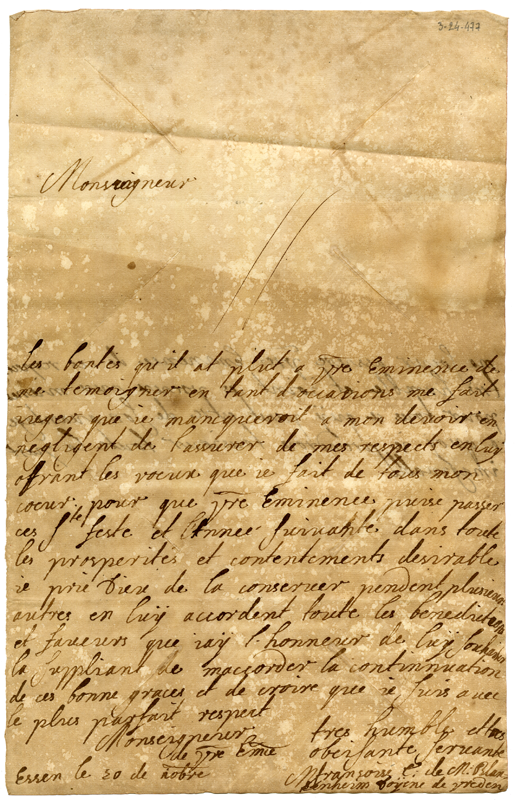 3-24-477
Monseigneur
Les bontes qu'il at plut a vre Eminence de
me temoigner en tant d'occasions me fait
iuger que ie manquerois a mon devoir en
negligent de l'assurer de mes respects en luy
ofrant les voeux que ie fait de tous mon
coeur, pour que vre Eminence puise passer
ces Ste feste et l'Année suivante dans toute
les prosperités et contentements desirable
ie prie Dieu de la conserver pendent plusieur
autres en luy accordent toute les benediction
et faveurs que iay l'honneur de luy souhaiter
la suppliant de maccorder la continnuation
de ces bonne graces et de croire que ie suis avec
le plus parfait respect
Monseigneur
de vre Emce
tres humble et tres
obeisante servante
Essen le 20 de xobre
françoise C. de M. Blan-
kenheim Doyene de vreden